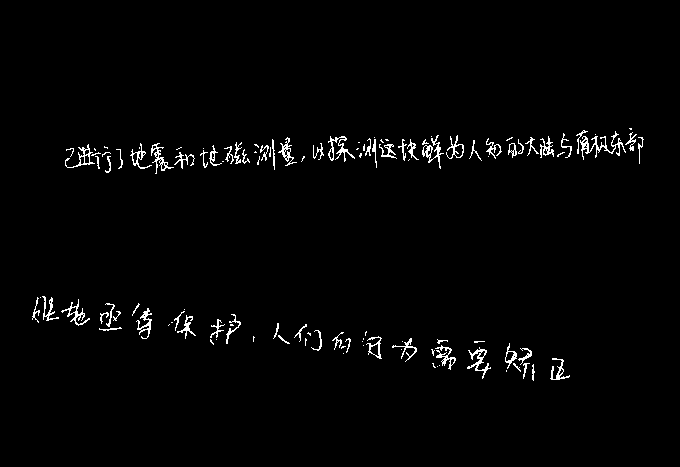 已进行了地震和地磁测量，以探测这块鲜为人知的大陆与南极东部
胜地亟待保护，人们的行为需要矫正